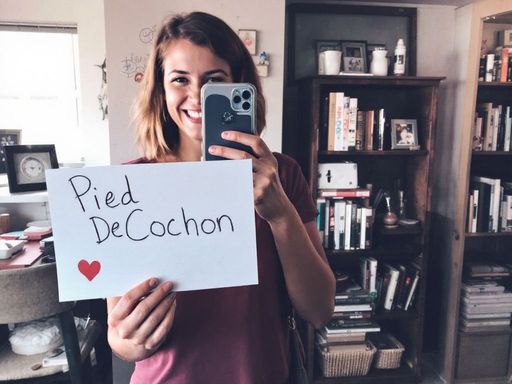 Pied
DeCochon